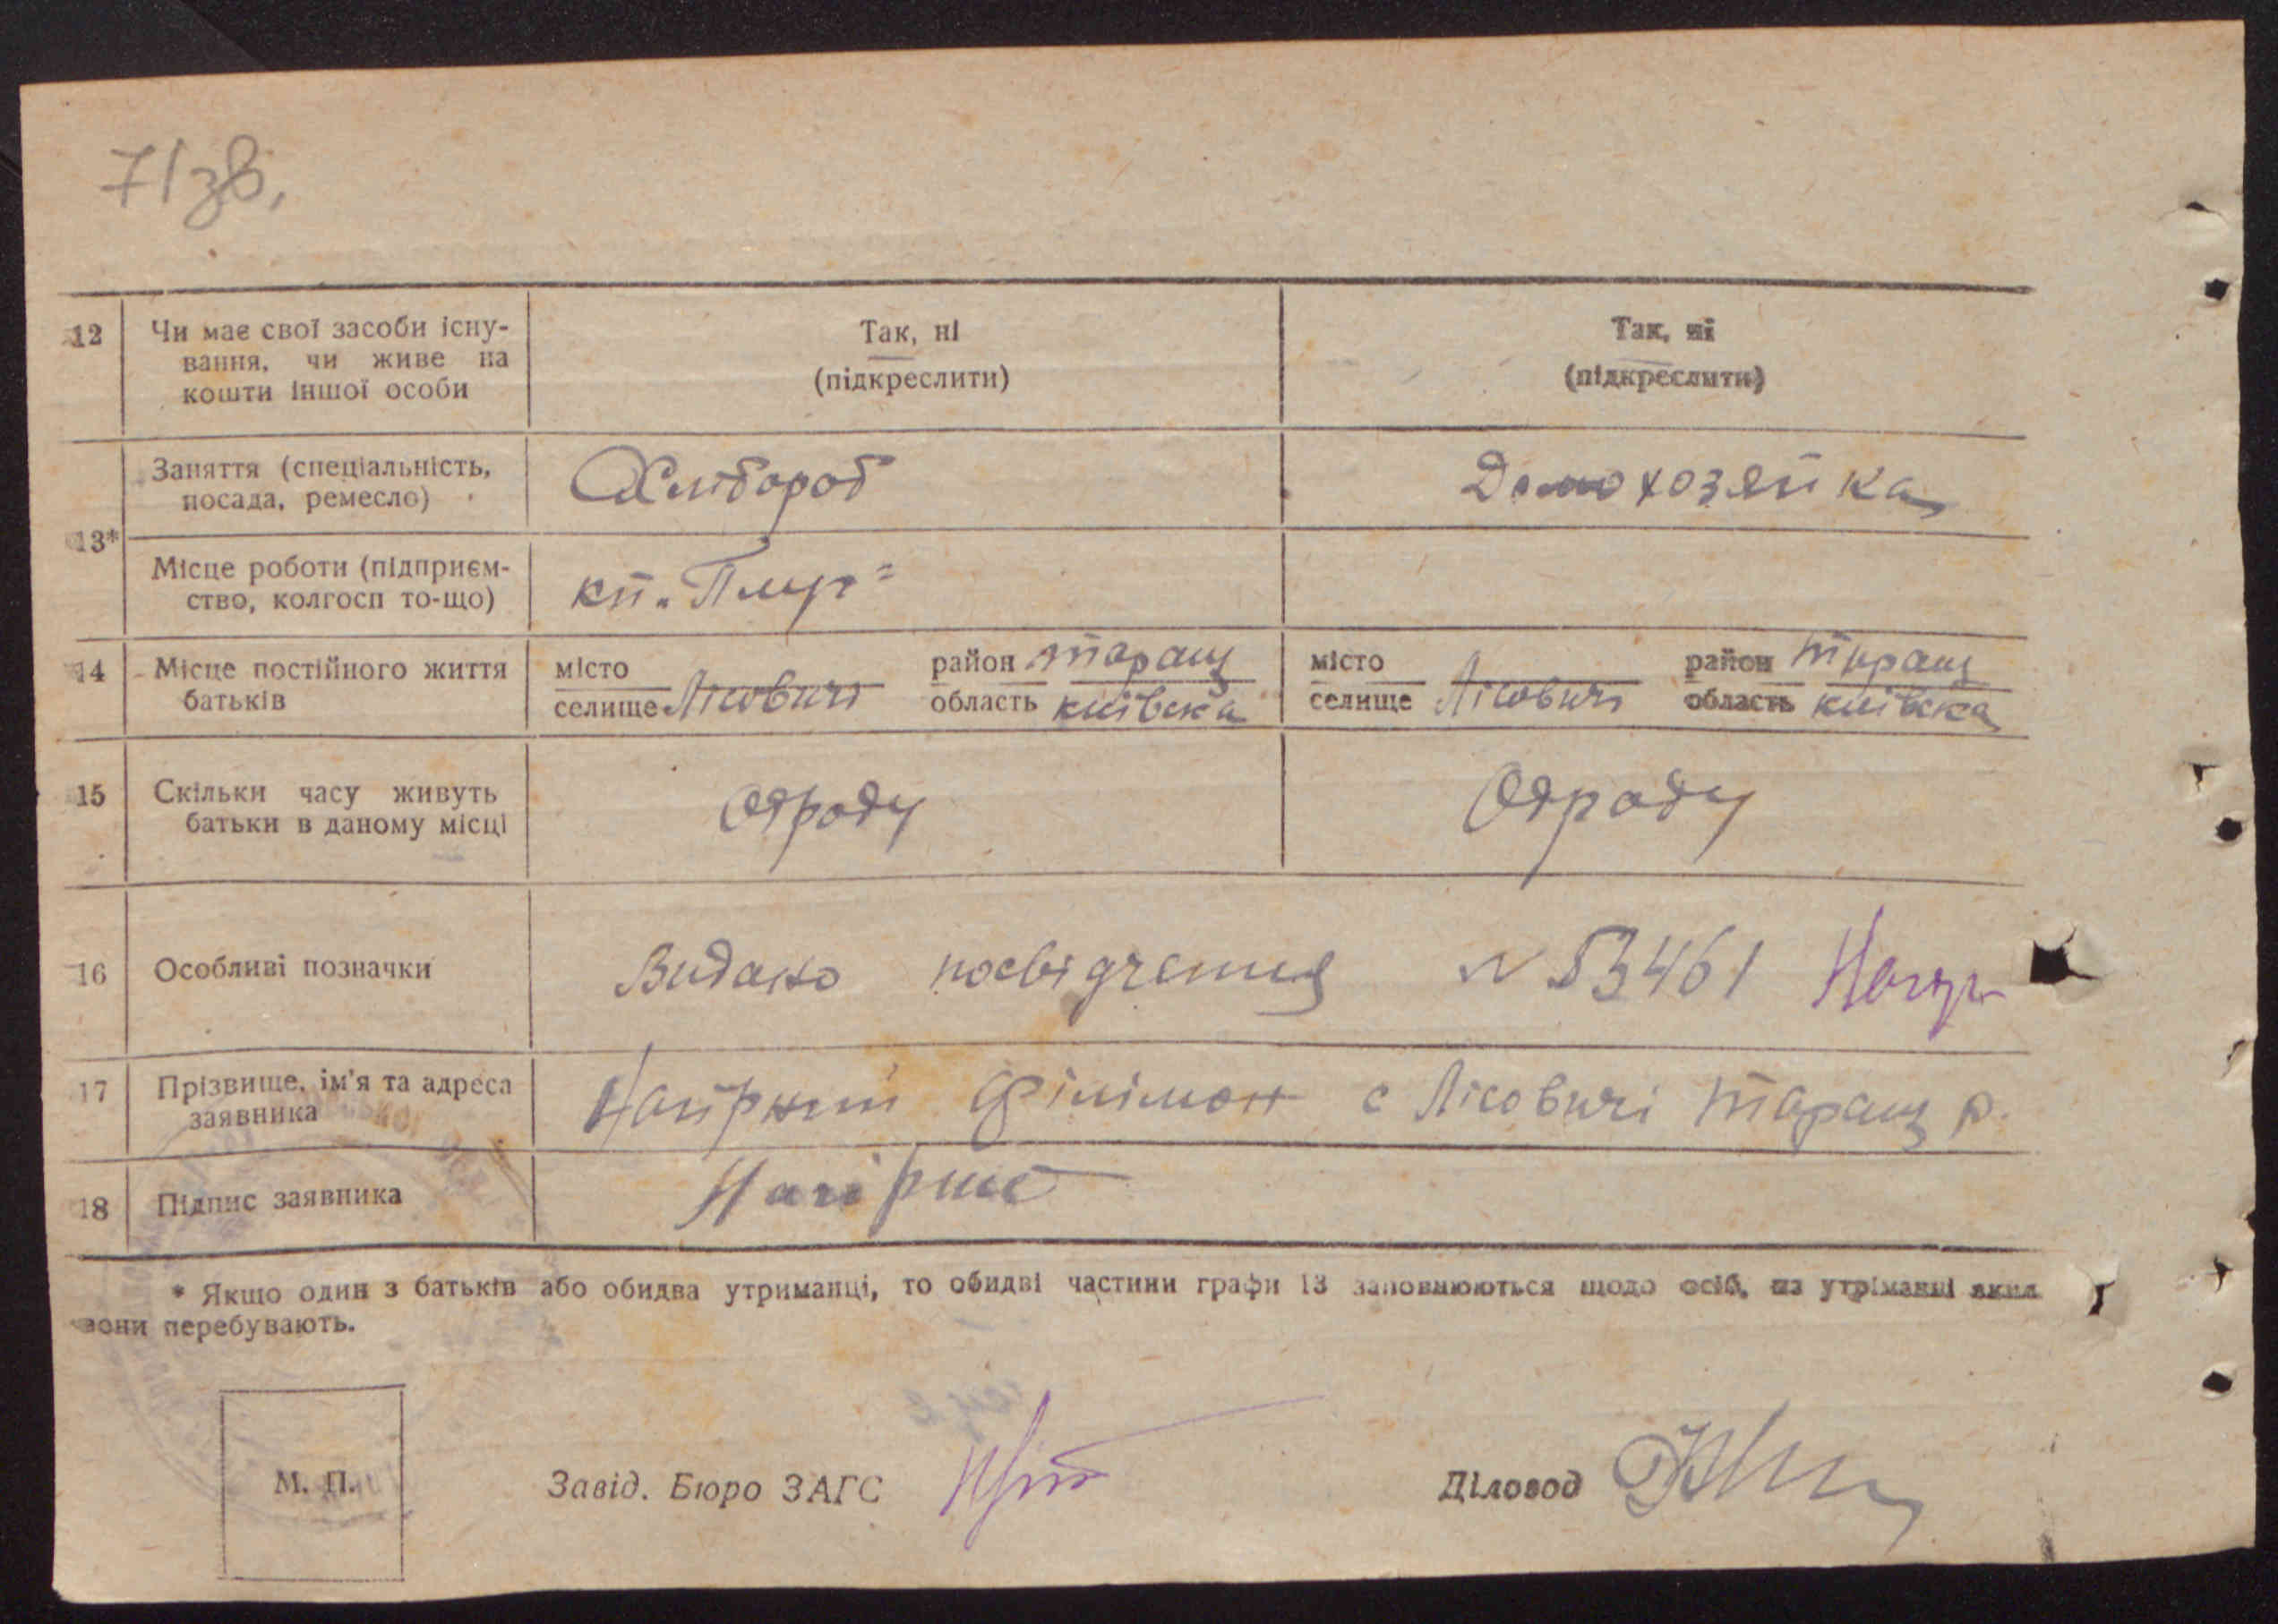 71зв.
12 Чи має свої засоби існу- Так, ні Так, ні
вання, чи живе на (підкреслити) (підкреслити)
кошти іншої особи
13* Заняття (спеціальність, Хлібороб Домохозяйка
посада, ремесло)
Місце роботи (підприєм-
ство, колгосп то-що)
14 Місце постійного життя місто район Таращ місто район Таращ
батьків селище Лісовичі область київська селище Лісовичі область київська
15 Скільки часу живуть Одроду Одроду
батьки в даному місці
16 Особливі позначки Видано посвідчення N 53461
17 Прізвище, ім'я та адреса Філімон с Лісовичі Таращ р.
заявника
18 Підпис заявника
* Якщо один з батьків або обидва утриманці, то обидві частини графи 13 заповнюються щодо осіб, на утріманні яких
вони перебувають.
М. П. Завід. Бюро ЗАГС Діловод